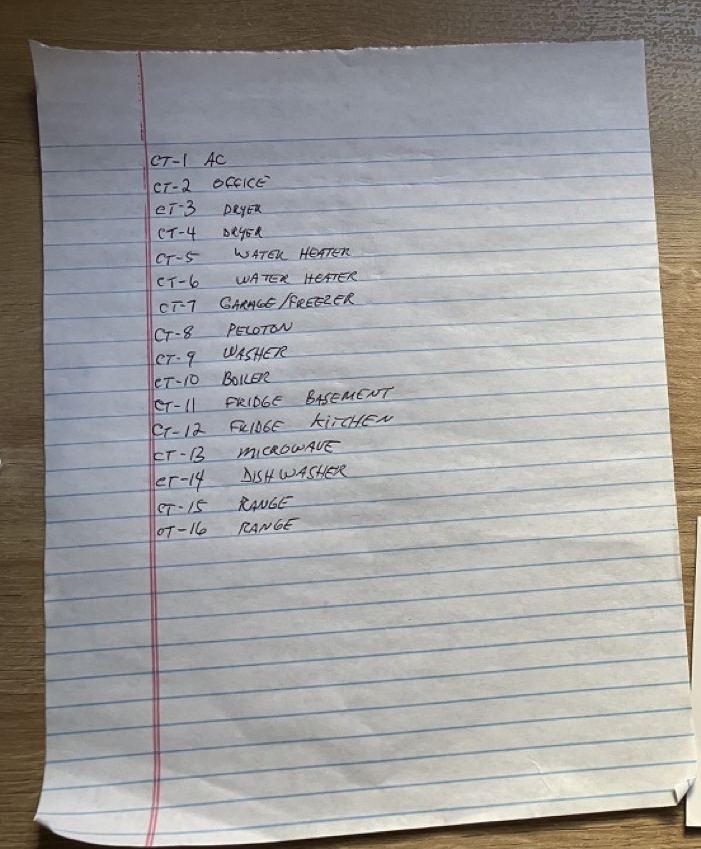 CT-1 AC
CT-2 OFFICE
CT-3 DRYER
CT-4 DRYER
CT-5 WATER HEATER
CT-6 WATER HEATER
CT-7 GARAGE/FREEZER
CT-8 PELOTON
CT-9 WASHER
CT-10 BOILER
CT-11 FRIDGE BASEMENT
CT-12 FRIDGE KITCHEN
CT-13 MICROWAVE
CT-14 DISHWASHER
CT-15 RANGE
CT-16 RANGE